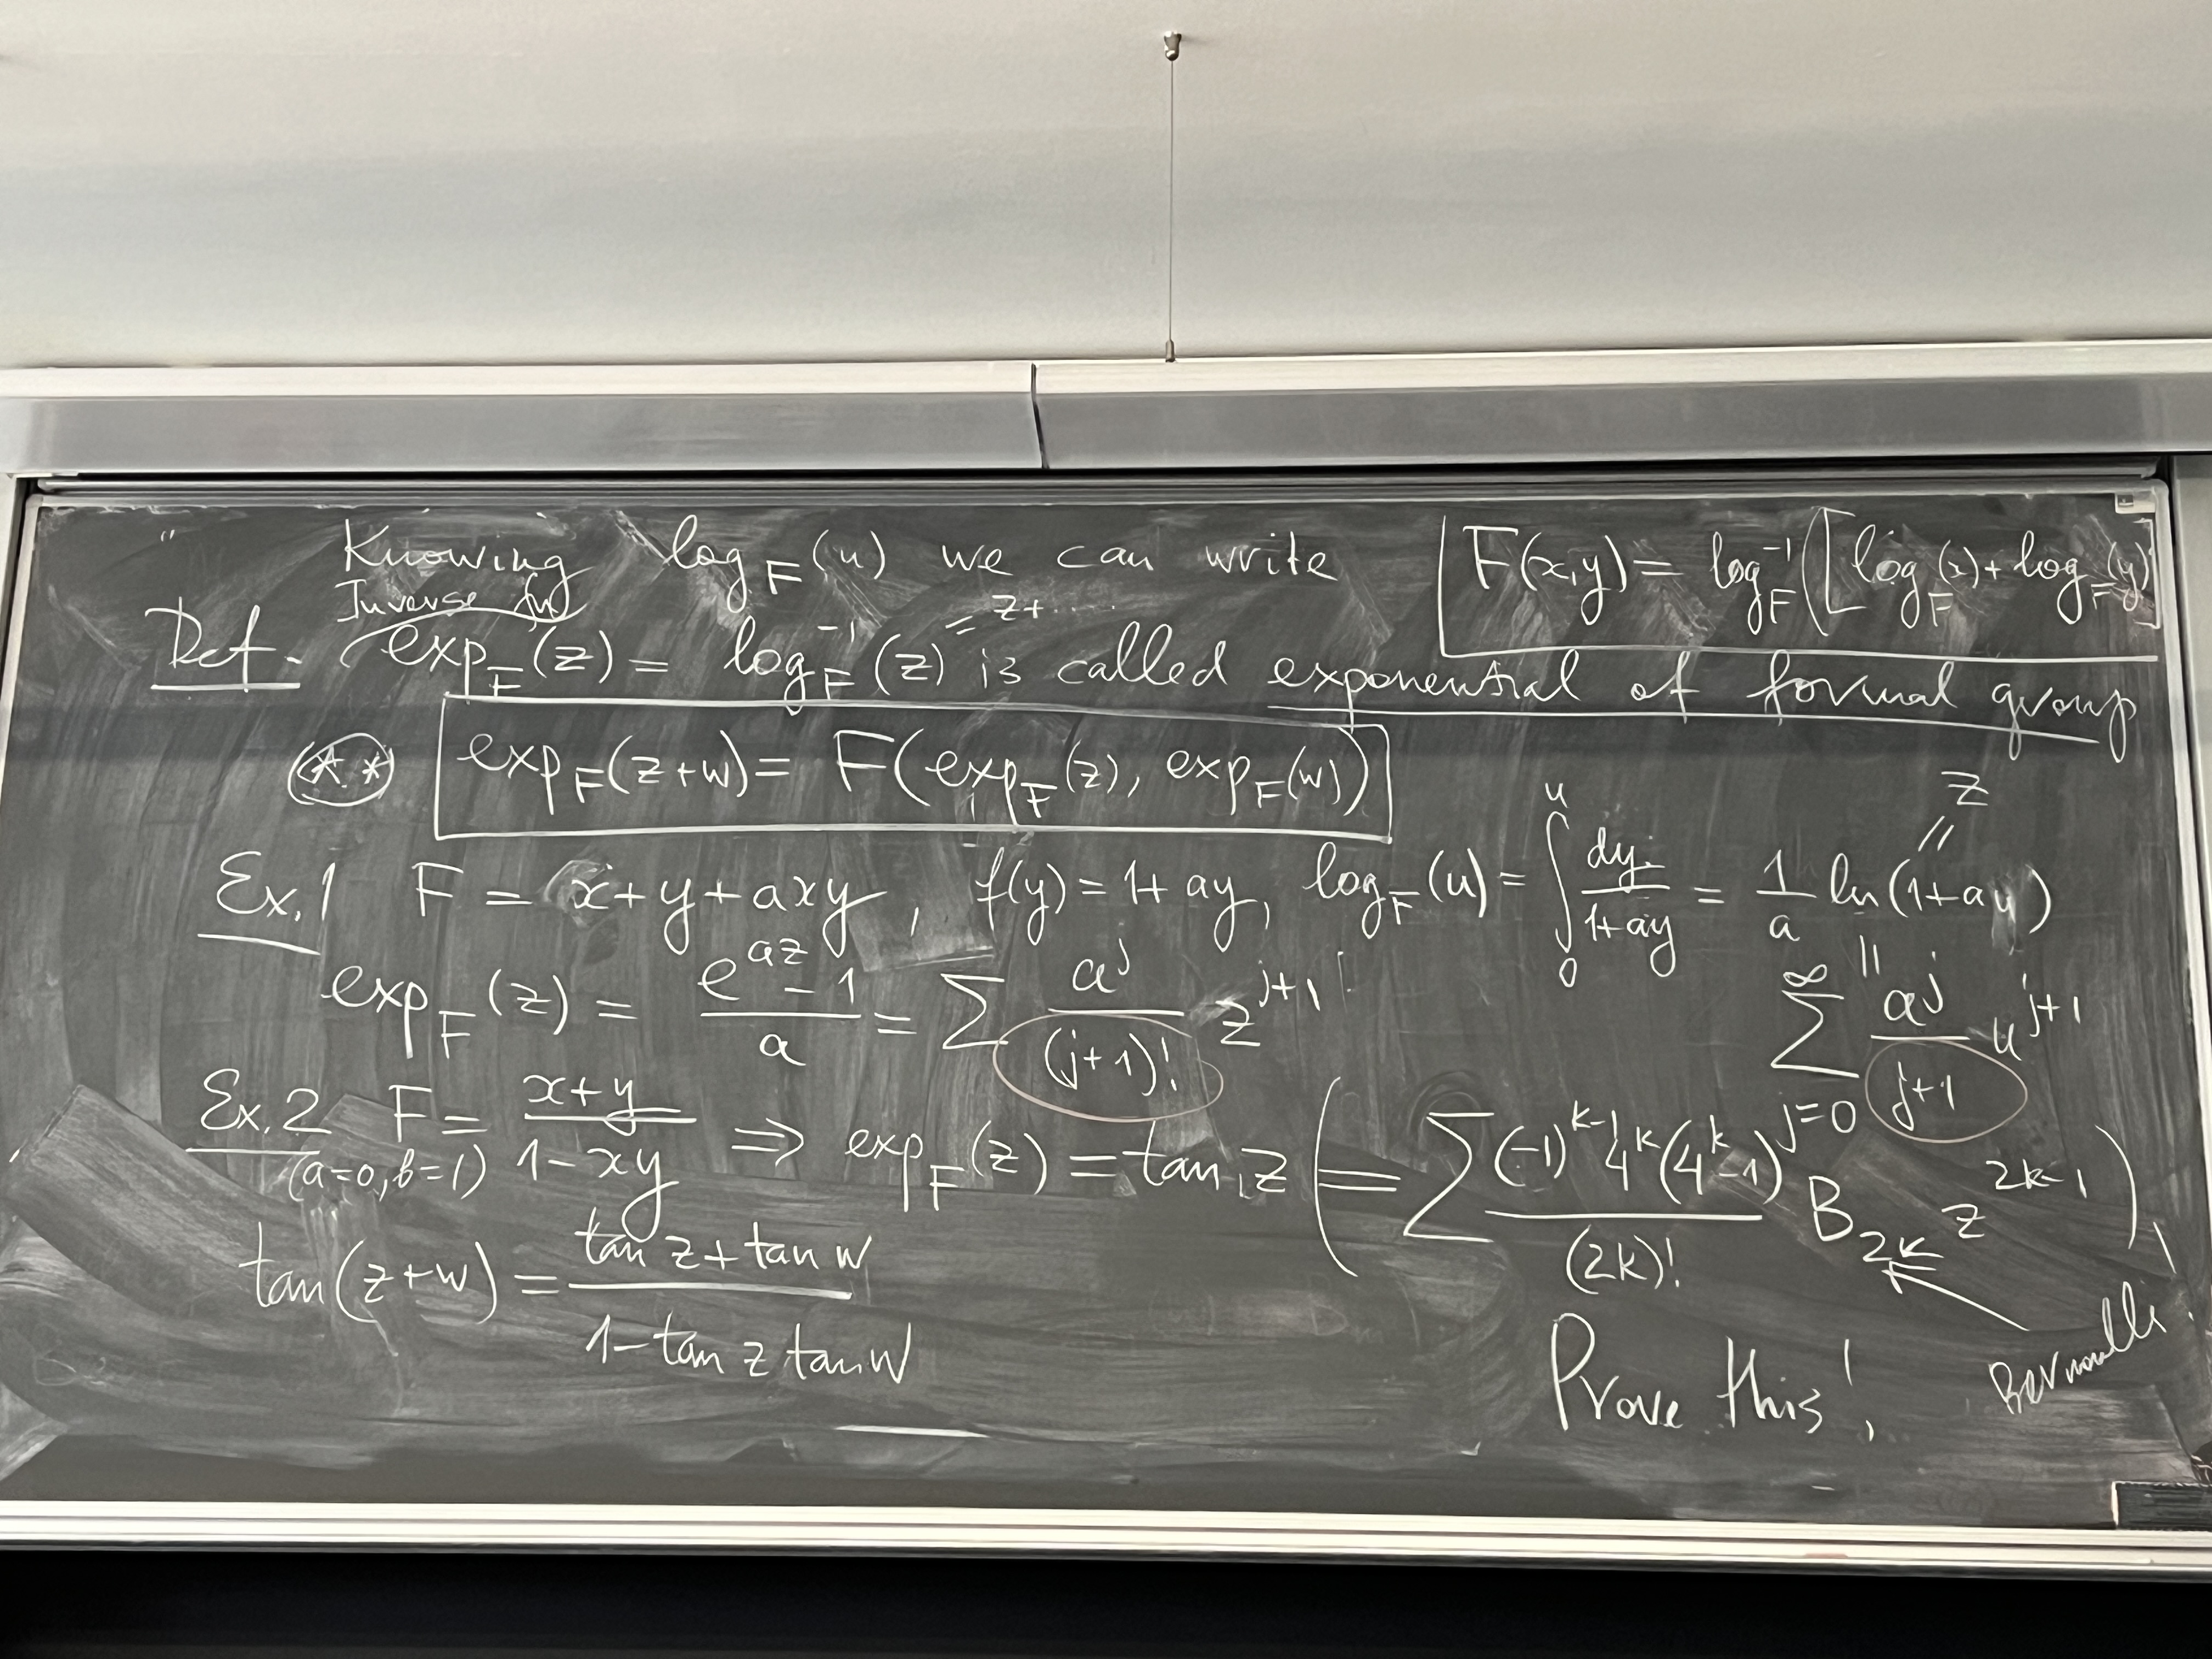 Knowing log_F(u) we can write F(x,y) = log_F^{-1}([log_F(x) + log_F(y)]
Inverse fn = z+....
Def. exp_F(z) = log_F^{-1}(z) is called exponential of formal group
(**) exp_F(z+w) = F(exp_F(z), exp_F(w))
Ex.1 F = x+y+axy, f(y) = 1+ay, log_F(u) = ∫_0^u dy/(1+ay) = 1/a ln(1+au) = z
exp_F(z) = (e^{az} - 1)/a = ∑ a^j/(j+1)! z^{j+1}
= ∑_{j=0}^∞ a^j/(j+1) u^{j+1}
Ex.2 F = (x+y)/(1-xy) ⇒ exp_F(z) = tan z (= ∑ (-1)^{k-1} 4^k (4^k-1)/(2k)! B_{2k} z^{2k-1})
(a=0, b=1)
tan(z+w) = (tan z + tan w)/(1 - tan z tan w)
Prove this!
Bernoulli